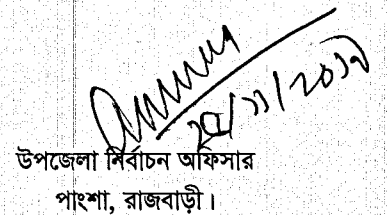 উপজেলা নির্বাচন অফিসার
পাংশা, রাজবাড়ী।